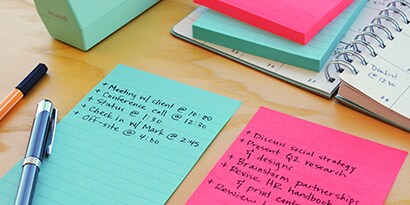 + Meeting w/ client @ 10:00
+ Conference call @ 12:30
+ Status @ 1:30
+ Check in w/ Mark @ 2:45
+ Off-site @ 4:00
+ Discuss social strategy
+ Present Q2 research
& designs
+ Brainstorm partnerships
+ Revise HR handbook
& print
+ Review
Dentist